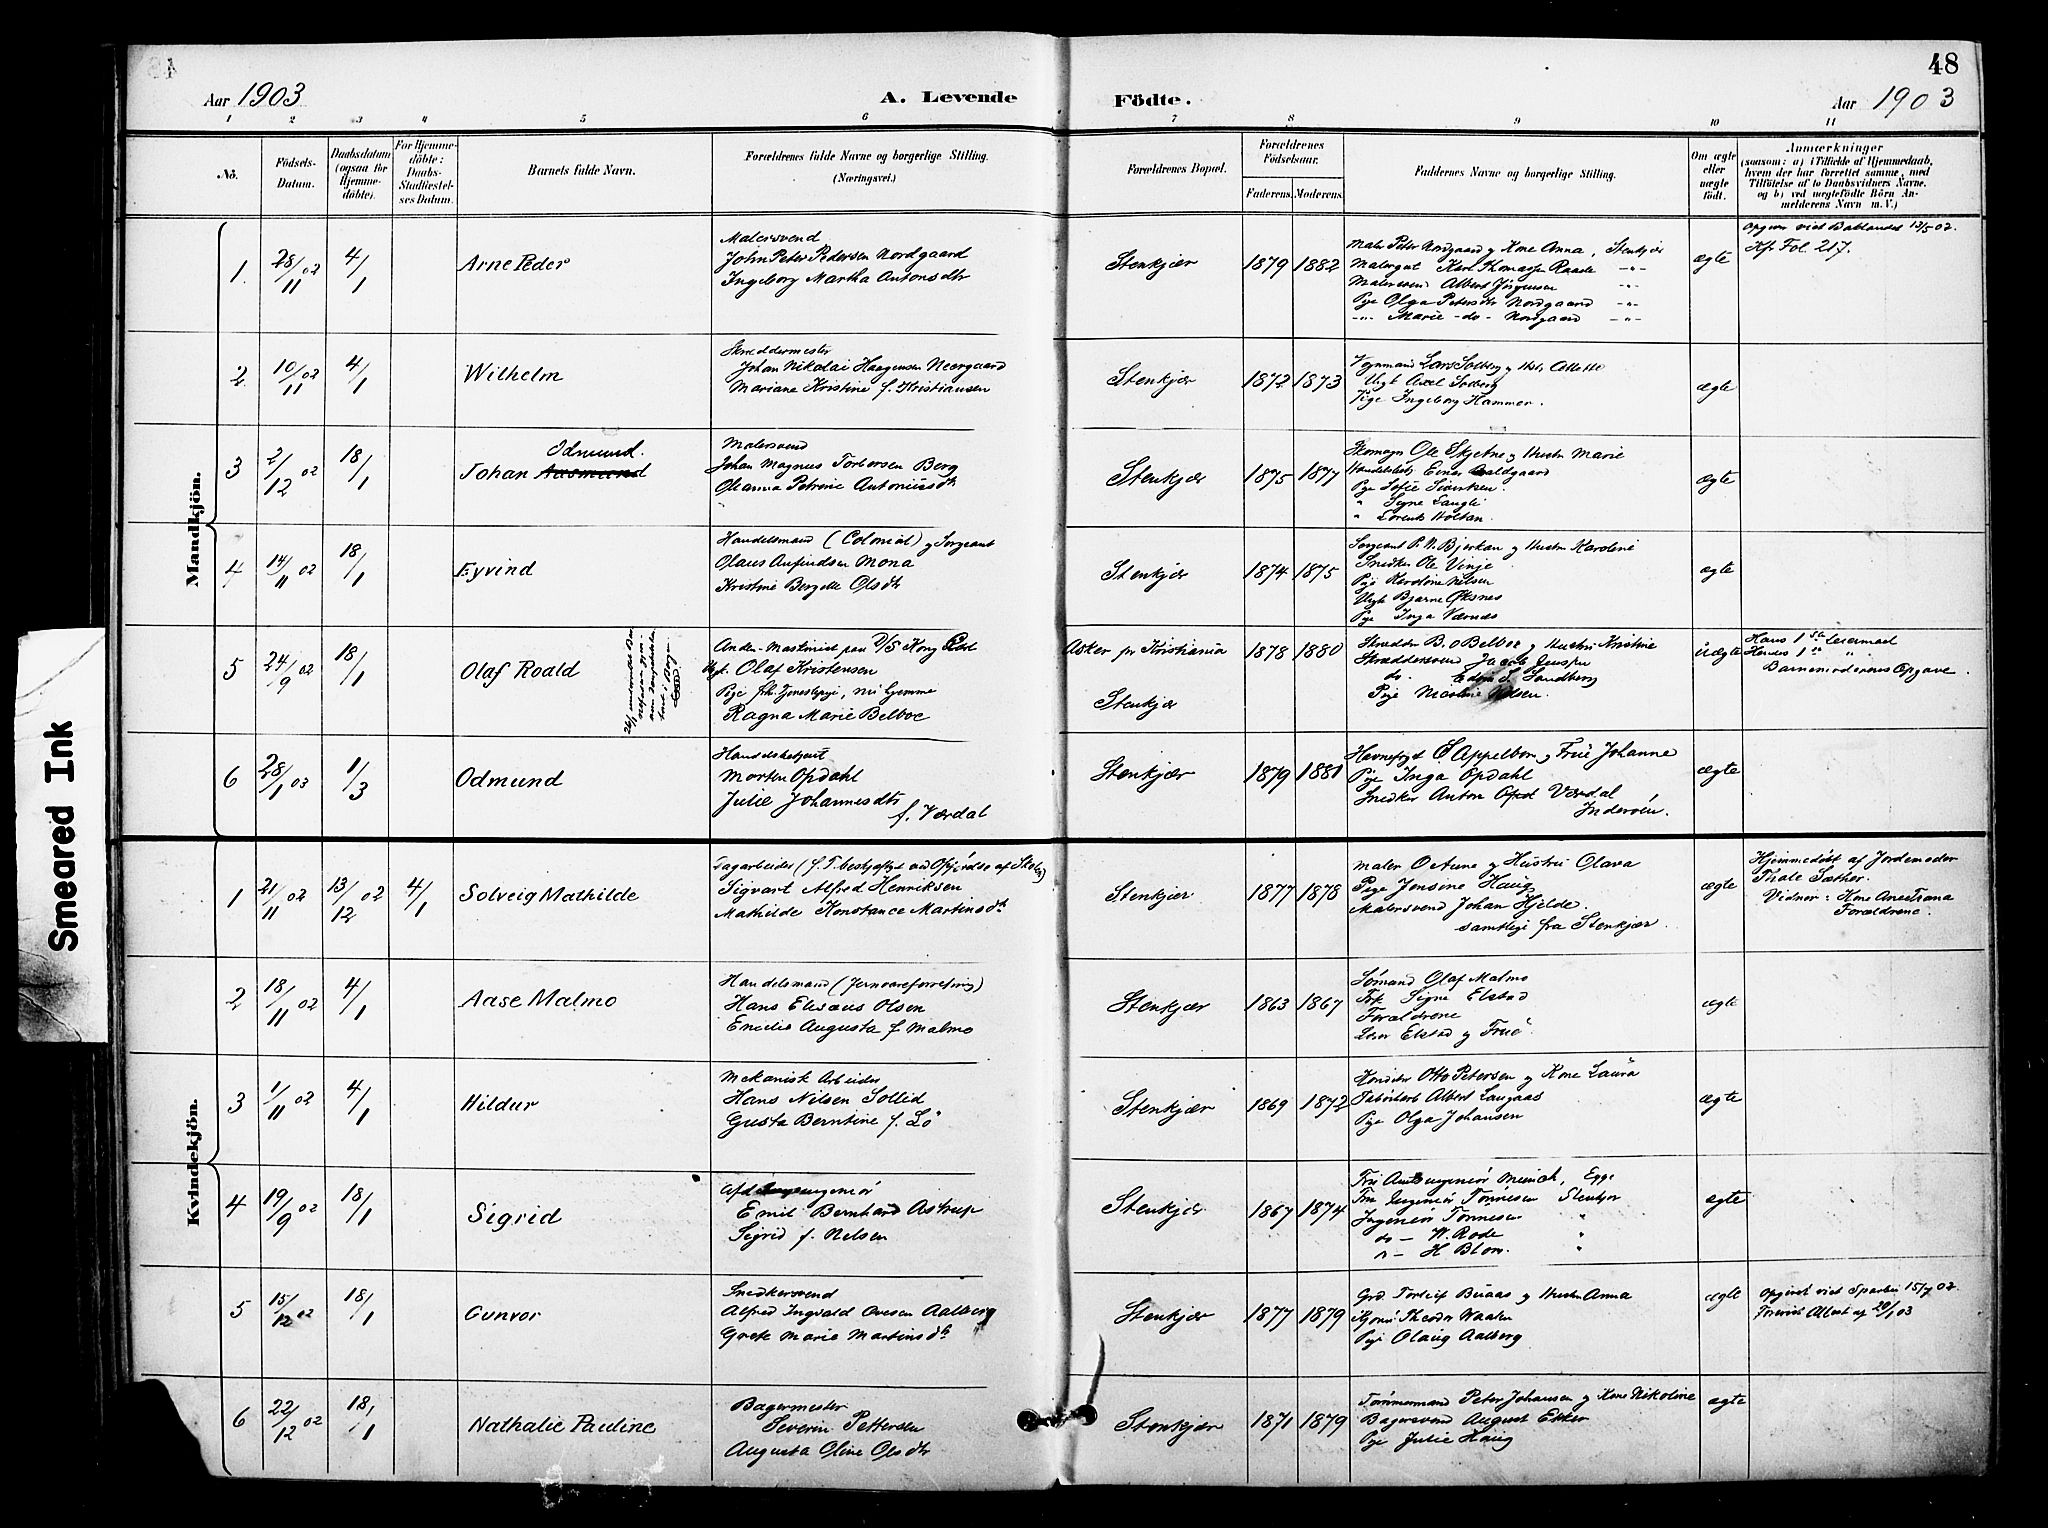 48
Aar 1903
A. Levende Födte.
Aar 1903
1 2 3 4 5 6 7 8 9 10 11
No.
Födsels-Datum.
Daabsdatum (ogsaa for Hjemmedöbte).
For Hjemmedöbte: Daabs-Stadfæstelses Datum.
Barnets fulde Navn.
Forældrenes fulde Navne og borgerlige Stilling. (Næringsvei.)
Forældrenes Bopæl.
Forældrenes Födselsaar.
Faderens. Moderens.
Faddernes Navne og borgerlige Stilling.
Om ægte eller uægte födt.
Anmærkninger
(saasom: a) i Tilfælde af Hjemmedaab,
hvem der har forrettet samme, med
Tilföielse af to Daabsvidners Navne,
og b) ved uægtefödte Börn An-
melderens Navn m. V.)
Mandkjön.
1. 28/11 02 4/1 Arne Peder
Malersvend
John Peter Pedersen Nordgaard
Ingeborg Martha Antonsdtr
Stenkjær 1879 1882
Maler Peter Nordgaard og Kone Anna, Stenkjær
Malergut Karl Thomassen Raade -"-
Malersvend Albert Jörgensen -"-
Pige Olga Petersdtr Nordgaard -"-
-"- Marie -do- Nordgaard -"-
ægte
Opgivet vied Baklandet 13/5 02.
Kf. Fol. 217.
2 10/11 02 4/1 Wilhelm
Skræddermester
Johan Nikolai Haagensen Neergaard
Mariane Kristine f. Kristiansen
Stenkjær 1872 1873
Vognmand Lars Solberg og Hstr Alette
Ungk Axel Solberg
Pige Ingeborg Hammer.
ægte
3 2/12 02 18/1 Johan Aasmund Odmund.
Malersvend
Johan Magnus Torbersen Berg
Oleanna Petrine Antoniusdtr
Stenkjær 1875 1877
Ole Skjetne og Hustru Marie
Einar Aaldgaard
Pige Sofie Sivertsen.
" Signe Langli
" Lorentz Holtan.
ægte
4 14/11 02 18/1 Eyvind
Handelsmand (Colonial) og Sergeant
Olaus Anfindsen Mona
Kristine Bergitte Olsdtr
Stenkjær 1874 1875
Sergeant P. N. Bjerkan og Hustru Karoline
Snedker Ole Vinje
Pige Karoline Nilsen
Ungk Bjarne Øksnes
Pige Inga Værnes
ægte
5 24/9 02 18/1 Olaf Roald
Anden-Maskinist paa D/S Kong
Ungk. Olaf Kristensen
Pige fhv. Tjenestepige, nu hjemme
Ragna Marie Belboe
Asker pr Kristiania
Stenkjær
1878 1880
Skrædder B. O Belboe og Hustru Kristine
Skræddersvend Jacob Jensen
do. Edvin S. Sandberg
Pige Nicoline Nilsen.
uægte
Hans 1ste Leiermaal
Hendes 1ste "
Barnemoderens Opgave.
6 28/1 03 1/3 Odmund
Handelsbetjent
Morten Opdahl
Julie Johannesdtr
f. Værdal
Stenkjær 1879 1881
Havnefogd S Appelbom og Frue Johanne
Pige Inga Opdahl
Snedker Anton Opd Værdal
Inderöen.
ægte
Kvindekjön.
1 21/11 02 13/12 02 4/1 Solveig Mathilde
Dagarbeider (f. T. beskjæftiget ved Opförelse af Skole)
Sigvart Alfred Henriksen
Mathilde Konstance Martinsdtr
Stenkjær 1877 1878
Maler O Aune og Hustru Olava
Pige Jensine Haug
Malersvend Johan Hjelde.
samtlige fra Stenkjær.
ægte
Hjemmedöbt af Jordemoder
Thale Sæther.
Vidner: Kone Ane Trana
Forældrene.
2 18/11 02 4/1 Aase Malmo
Handelsmand (Jernvareforretning)
Hans Elisæus Olsen
Emilie Augusta f. Malmo
Stenkjær 1863 1867
Sömand Olaf Malmo
Frk Signe Elstad
Forældrene
Elstad og Frue
ægte
3 1/11 02 4/1 Hildur
Mekanisk Arbeider
Hans Nilsen Sollid
Gusta Berntine f. Lö
Stenkjær 1869 1872
Konditor Otto Petersen og Kone Laura
Fabrikarb Albert Langaas
Pige Olga Johansen
ægte
4 19/9 02 18/1 Sigrid
Afd ingeniör
Emil Bernhard Astrup
Sigrid f. Nilsen
Stenkjær 1867 1874
Fru Amtsingeniör Meinich, Egge
Fru Ingeniör Tönnesen Stenkjær
Ingeniör Tönnesen "
do - W. Rode "
" - H Blom. "
ægte
5 15/12 02 18/1 Gunvor
Snedkersvend
Alfred Ingvald Ovesen Aalberg
Grete Marie Martinsdtr
Stenkjær 1877 1879
Grd Torleif Buaas og Hustru Anna
Theodor Waalen
Pige Olaug Aalberg
ægte
Opgivet viet Sparbu 15/7 02.
Forevist Attest af 20/1 03
6 22/12 02 18/1 Nathalie Pauline
Bagermester
Severin Pettersen
Augusta Oline Olsdtr
Stenkjær 1871 1879
Tömmermand Peter Johansen og Kone Nikoline
Bagersvend August Esker
Pige Julie Haug
ægte
Smeared Ink